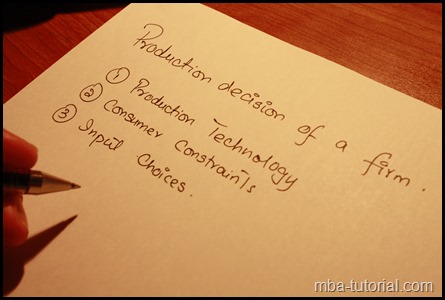 Production decision of a firm.
① Production Technology
② Consumer Constraints
③ Input Choices.
mba-tutorial.com